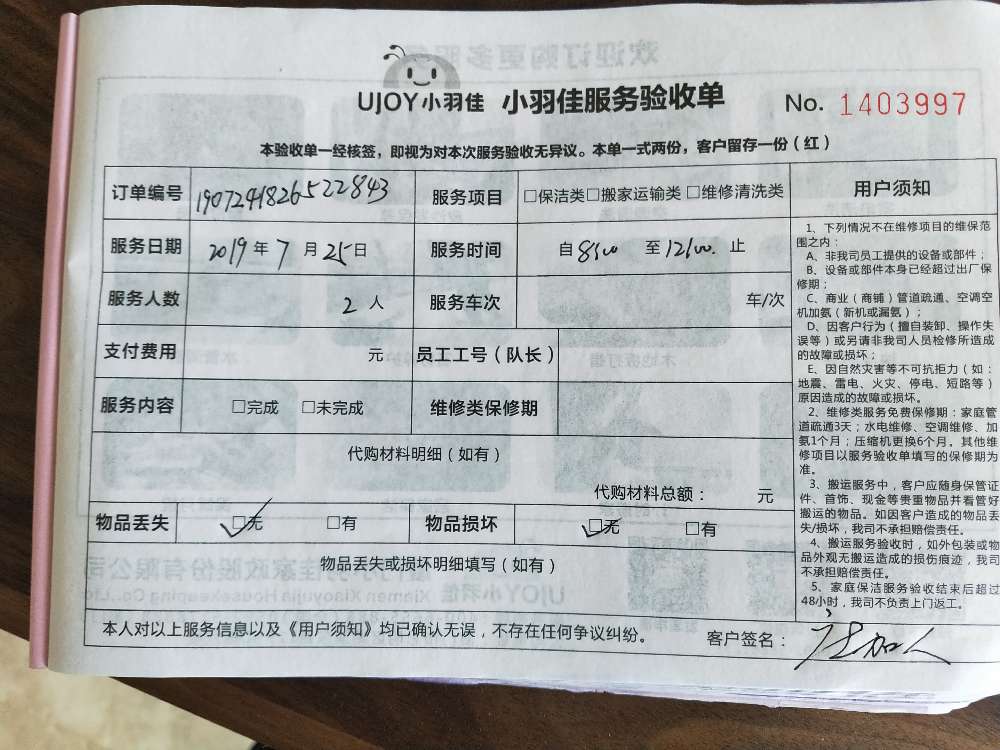 UJOY小羽佳 小羽佳服务验收单 No. 1403997
本验收单一经核签，即视为对本次服务验收无异议。本单一式两份，客户留存一份（红）
订单编号 190724182652​2843 服务项目 □保洁类□搬家运输类 □维修清洗类
服务日期 2019 年 7 月 25 日 服务时间 自 8:00 至 12:00 止
服务人数 2 人 服务车次 车/次
支付费用 元 员工工号（队长）
服务内容 □完成 □未完成 维修类保修期
代购材料明细（如有）
代购材料总额： 元
物品丢失 □无 □有 物品损坏 □无 □有
物品丢失或损坏明细填写（如有）
本人对以上服务信息以及《用户须知》均已确认无误，不存在任何争议纠纷。 客户签名：
用户须知
1、下列情况不在维修项目的维保范
围之内：
A、非我司员工提供的设备或部件；
B、设备或部件本身已经超过出厂保
修期；
C、商业（商铺）管道疏通、空调空
机加氨（新机或漏氨）；
D、因客户行为（擅自装卸、操作失
误等）或另请非我司人员检修所造成
的故障或损坏；
E、因自然灾害等不可抗拒力（如：
地震、雷电、火灾、停电、短路等）
原因造成的故障或损坏。
2、维修类服务免费保修期：家庭管
道疏通3天；水电维修、空调维修、加
氨1个月；压缩机更换6个月。其他维
修项目以服务验收单填写的保修期为
准。
3、搬运服务中，客户应随身保管证
件、首饰、现金等贵重物品并看管好
搬运的物品。如因客户造成的物品丢
失/损坏，我司不承担赔偿责任。
4、搬运服务验收时，如外包装或物
品外观无搬运造成的损伤痕迹，我司
不承担赔偿责任。
5、家庭保洁服务验收结束后超过
48小时，我司不负责上门返工。